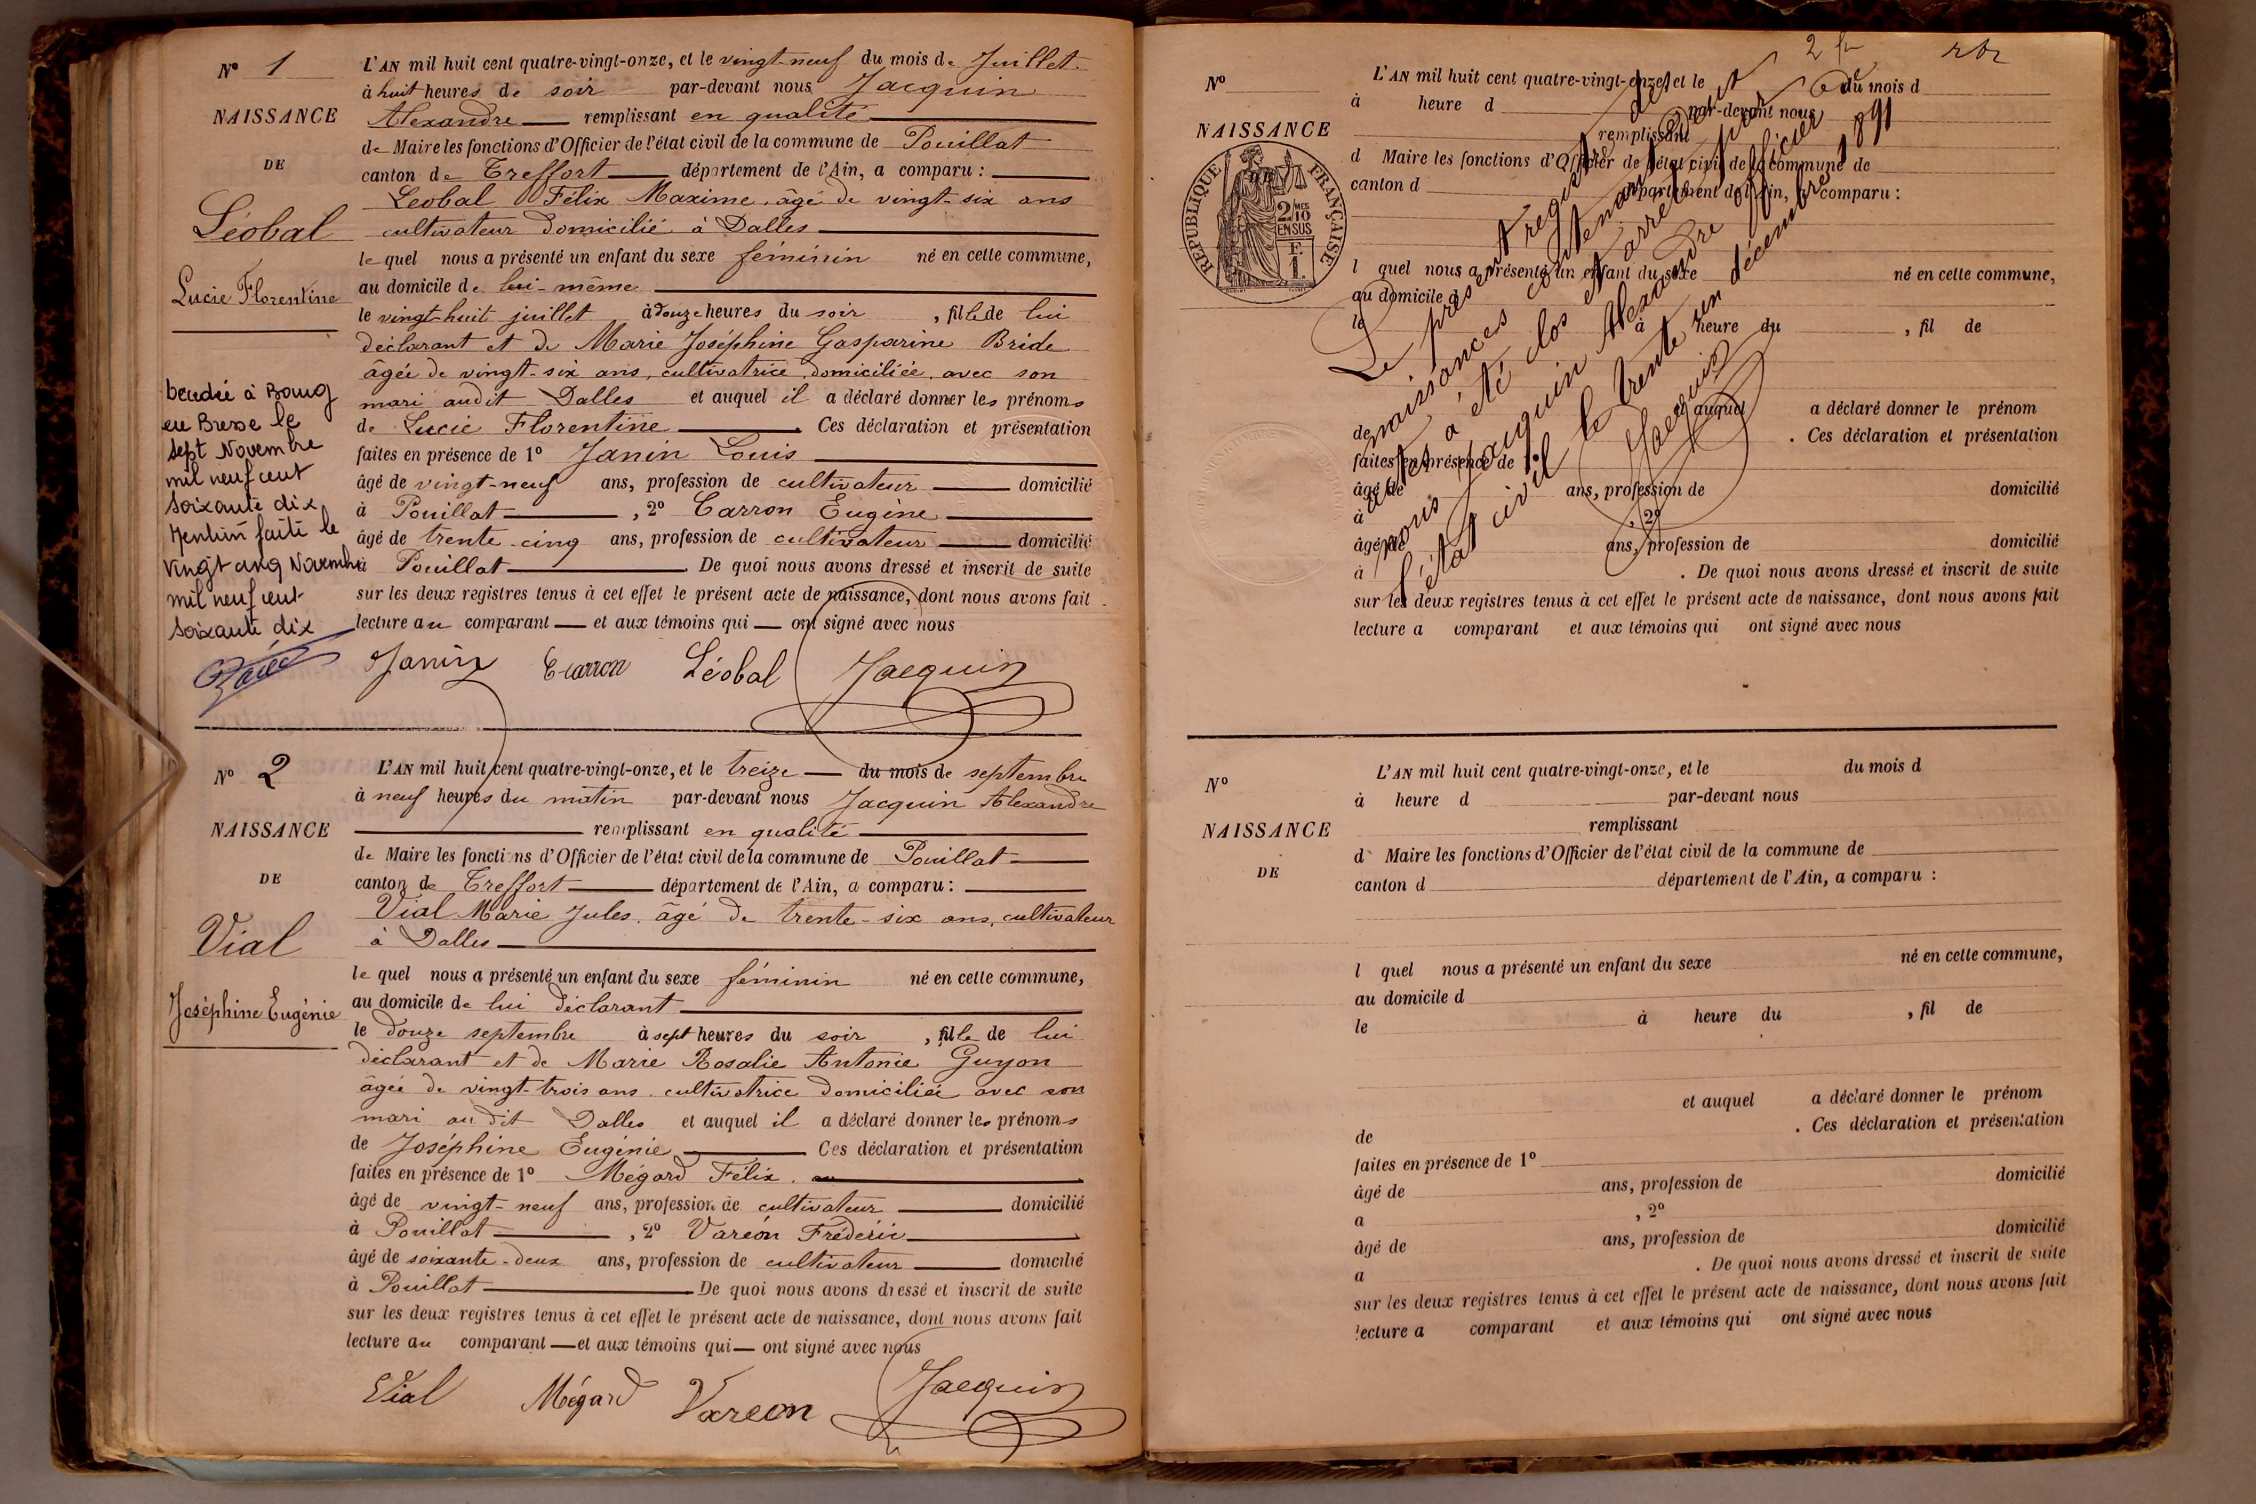 N° 1
NAISSANCE
DE
Léobal
Lucie Florentine
L'AN mil huit cent quatre-vingt-onze, et le vingt-neuf du mois de Juillet
à huit heures de soir par-devant nous Jacquin
Alexandre remplissant en qualité
de Maire les fonctions d'Officier de l'état civil de la commune de Pouillat
canton de Treffort département de l'Ain, a comparu :
Léobal Félix Maxime, âgé de vingt-six ans
cultivateur domicilié à Dalles
le quel nous a présenté un enfant du sexe féminin né en cette commune,
au domicile de lui-même
le vingt-huit juillet à douze heures du soir, fille de lui
déclarant et de Marie Joséphine Gasparine Bride
âgée de vingt-six ans, cultivatrice, domiciliée avec son
mari audit Dalles et auquel il a déclaré donner les prénoms
de Lucie Florentine. Ces déclaration et présentation
faites en présence de 1° Janin Louis
âgé de vingt-neuf ans, profession de cultivateur domicilié
à Pouillat, 2° Carron Eugène
âgé de trente-cinq ans, profession de cultivateur domicilié
à Pouillat De quoi nous avons dressé et inscrit de suite
sur les deux registres tenus à cet effet le présent acte de naissance, dont nous avons fait
lecture au comparant et aux témoins qui ont signé avec nous
Janin E Carron Léobal Jacquin
Décédée à Bourg
en Bresse le
sept Novembre
mil neuf cent
soixante dix
Mention faite le
vingt cinq Novembre
mil neuf cent
soixante dix
N° 2
NAISSANCE
DE
Vial
Joséphine Eugénie
L'AN mil huit cent quatre-vingt-onze, et le treize du mois de septembre
à neuf heures du matin par-devant nous Jacquin Alexandre
remplissant en qualité
de Maire les fonctions d'Officier de l'état civil de la commune de Pouillat
canton de Treffort département de l'Ain, a comparu :
Vial Marie Jules, âgé de trente-six ans, cultivateur
à Dalles
le quel nous a présenté un enfant du sexe féminin né en cette commune,
au domicile de lui déclarant
le douze septembre à sept heures du soir, fille de lui
déclarant et de Marie Rosalie Antonie Guyon
âgée de vingt-trois ans cultivatrice domiciliée avec son
mari au dit Dalles et auquel il a déclaré donner les prénoms
de Joséphine Eugénie Ces déclaration et présentation
faites en présence de 1° Mégard Félix
âgé de vingt-neuf ans, profession de cultivateur domicilié
à Pouillat, 2° Varéon Frédéric
âgé de soixante-deux ans, profession de cultivateur domicilié
à Pouillat De quoi nous avons dressé et inscrit de suite
sur les deux registres tenus à cet effet le présent acte de naissance, dont nous avons fait
lecture au comparant et aux témoins qui ont signé avec nous
Vial Mégard Vareon Jacquin
N°
NAISSANCE
RÉPUBLIQUE FRANÇAISE
2 MES 10 EN SUS
F. 1.
L'AN mil huit cent quatre-vingt-onze, et le du mois d
à heure d par-devant nous
remplissant
d Maire les fonctions d'Officier de l'état civil de la commune de
canton d département de l'Ain, a comparu :
l quel nous a présenté un enfant du sexe né en cette commune,
au domicile d
le à heure du , fil de
auquel a déclaré donner le prénom
de . Ces déclaration et présentation
faites en présence de 1°
âgé de ans, profession de domicilié
à , 2°
âgé de ans, profession de domicilié
à . De quoi nous avons dressé et inscrit de suite
sur les deux registres tenus à cet effet le présent acte de naissance, dont nous avons fait
lecture a comparant et aux témoins qui ont signé avec nous
Le présent registre des
naissances contenant deux
actes a été clos et arrêté par
nous Jacquin Alexandre officier de
l'état civil le trente un décembre 1891
Jacquin
N°
NAISSANCE
DE
L'AN mil huit cent quatre-vingt-onze, et le du mois d
à heure d par-devant nous
remplissant
d Maire les fonctions d'Officier de l'état civil de la commune de
canton d département de l'Ain, a comparu :
l quel nous a présenté un enfant du sexe né en cette commune,
au domicile d
le à heure du , fil de
et auquel a déclaré donner le prénom
de . Ces déclaration et présentation
faites en présence de 1°
âgé de ans, profession de domicilié
a , 2°
âgé de ans, profession de domicilié
a . De quoi nous avons dressé et inscrit de suite
sur les deux registres tenus à cet effet le présent acte de naissance, dont nous avons fait
lecture a comparant et aux témoins qui ont signé avec nous